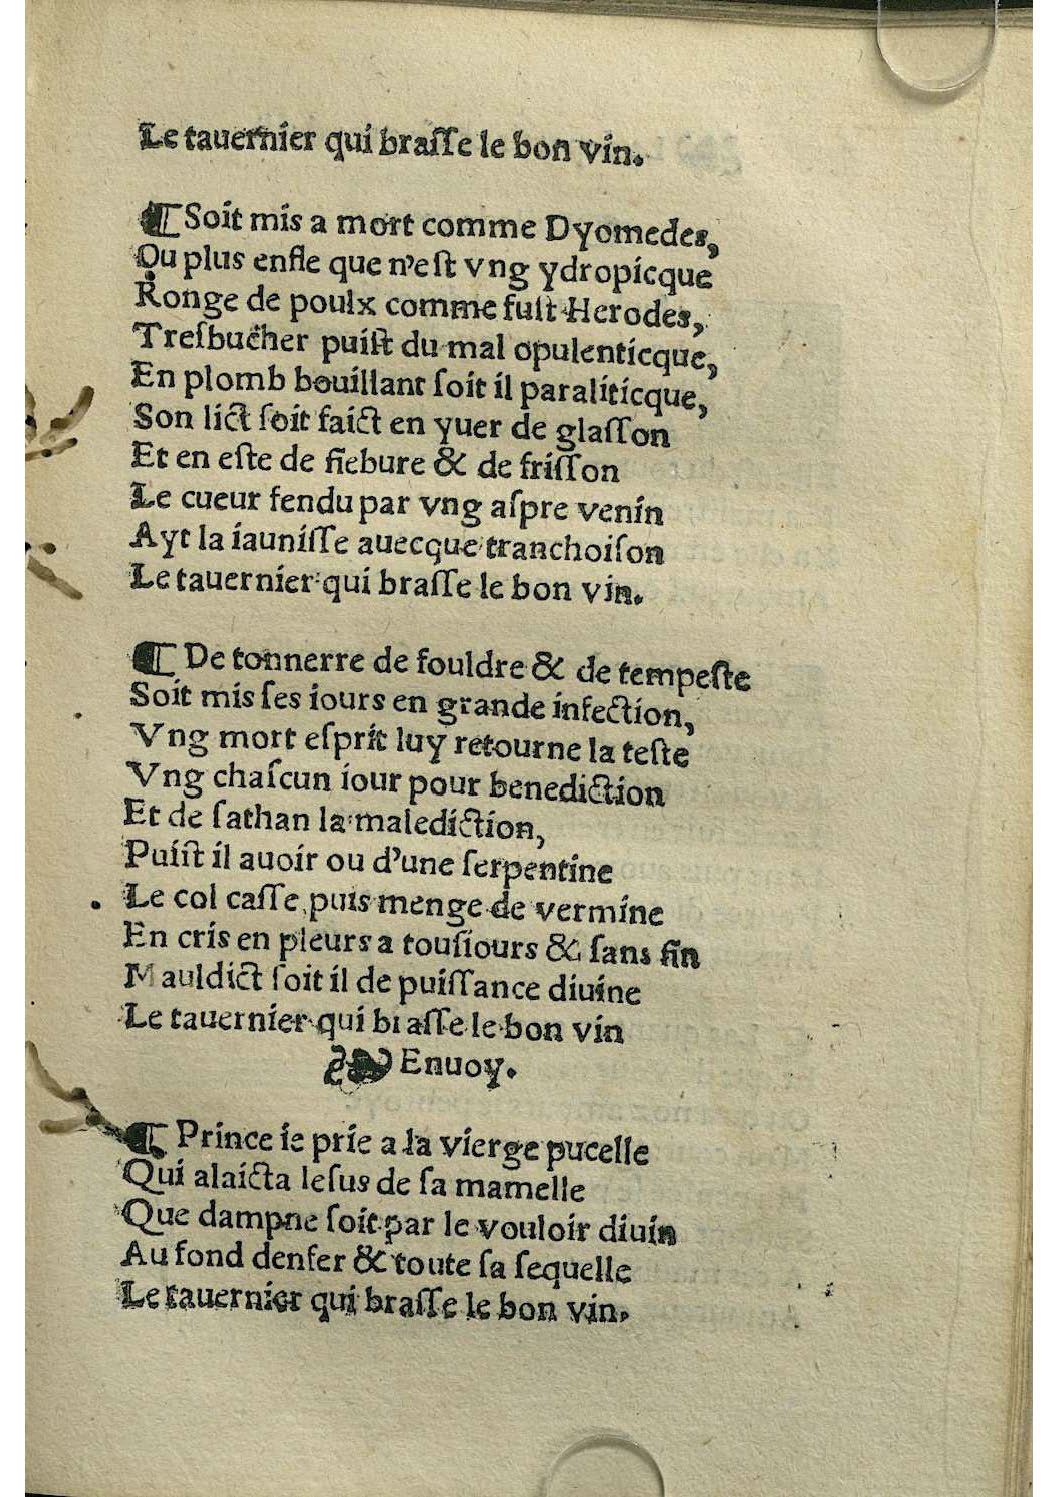 Le tauernier qui braſſe le bon vin.
¶ Soit mis a mort comme Dyomedes,
Ou plus enfle que n'eſt vng ydropicque
Ronge de poulx comme fuſt Herodes,
Treſbucher puiſt du mal opulenticque,
En plomb bouillant ſoit il paraliticque,
Son lict ſoit faict en yuer de glaſſon
Et en eſte de fiebure & de friſſon
Le cueur fendu par vng aſpre venin
Ayt la iauniſſe auecque tranchoiſon
Le tauernier qui braſſe le bon vin.
¶ De tonnerre de fouldre & de tempeſte
Soit mis ſes iours en grande infection,
Vng mort eſprit luy retourne la teſte
Vng chaſcun iour pour benediction
Et de ſathan la malediction,
Puiſt il auoir ou d'une ſerpentine
Le col caſſe, puis menge de vermine
En cris en pleurs a touſiours & ſans fin
Mauldict ſoit il de puiſſance diuine
Le tauernier qui braſſe le bon vin
Enuoy.
¶ Prince ie prie a la vierge pucelle
Qui alaicta Ieſus de ſa mamelle
Que dampne ſoit par le vouloir diuin
Au fond denfer & toute ſa ſequelle
Le tauernier qui braſſe le bon vin.